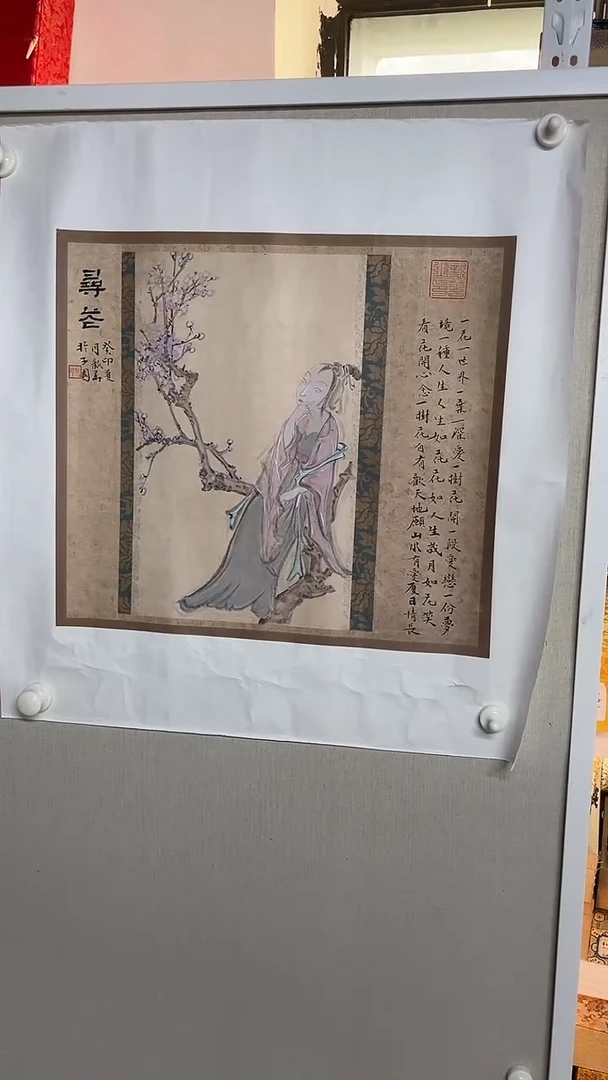 一花一世界一叶一深愛一樹花開一段愛戀一份夢
境一種人生人生如花花如人生歲月如花笑
看花開心念一樹花自有歡天地願山水有愛夏日情長
尋花
癸卯夏
月
於子園